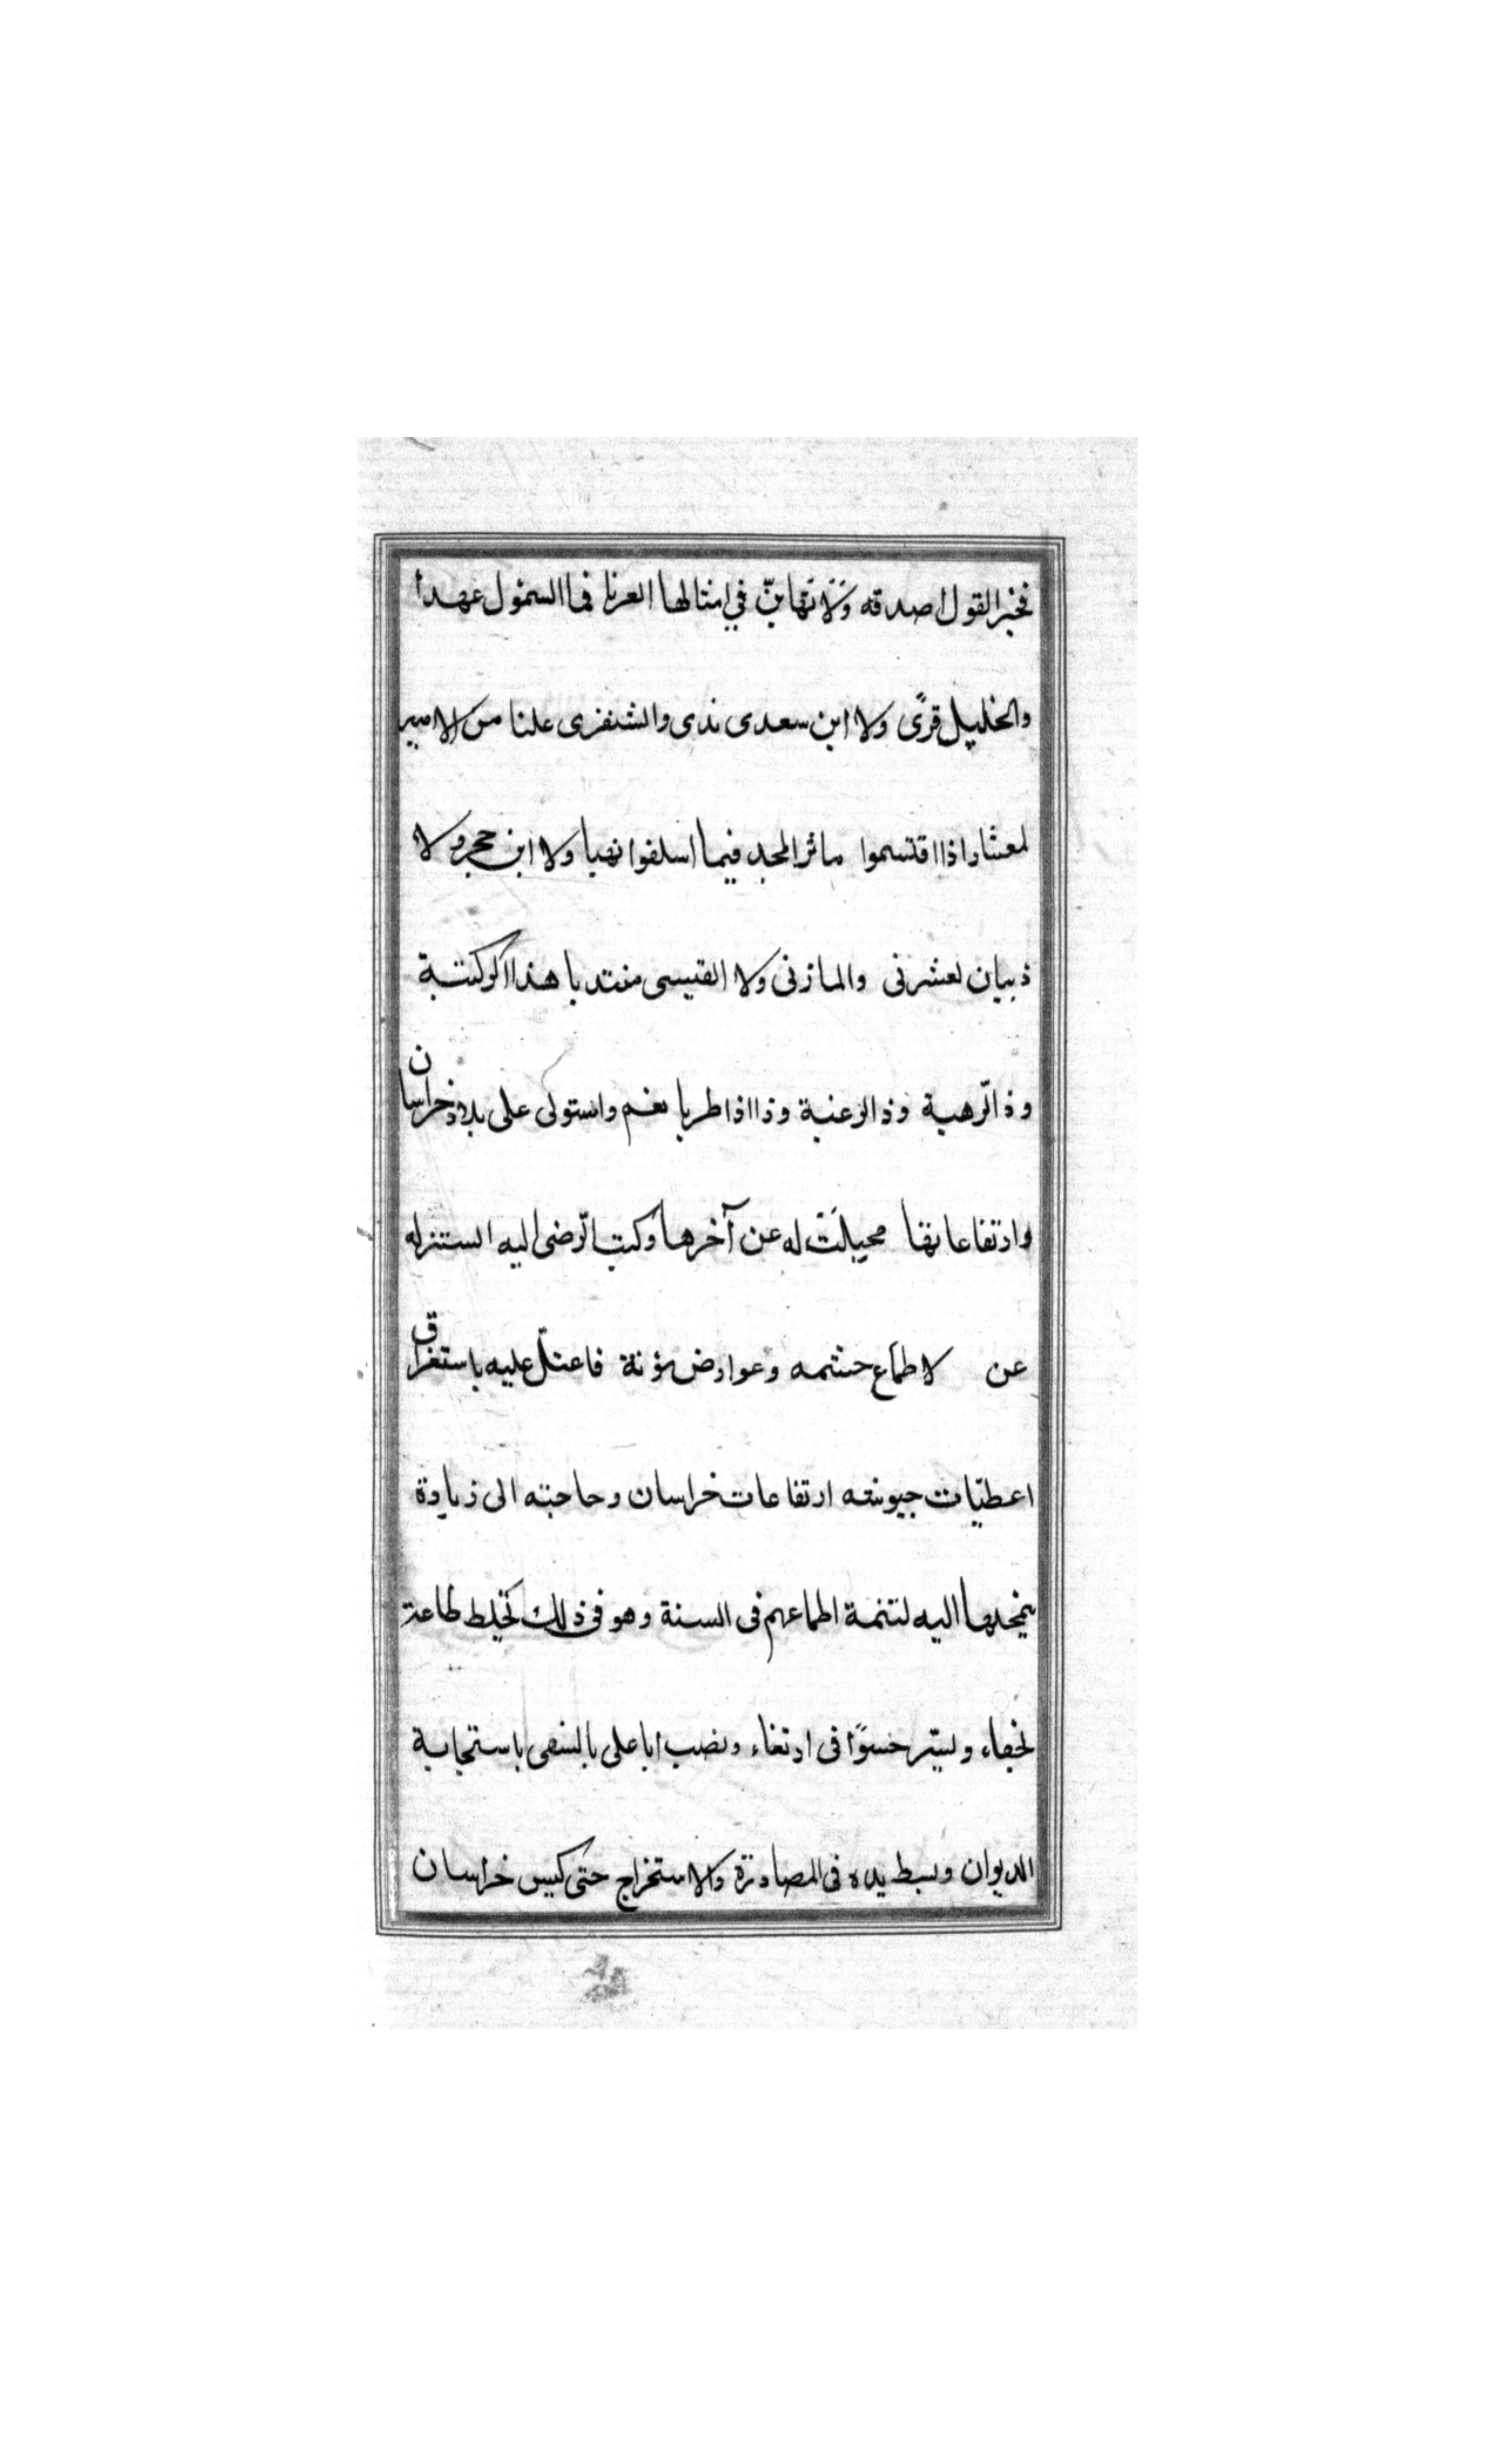 فخير القول اصدقه ولا تهابنّ في امثالها العربا فما السمؤل عهدا
والخليل قرًى ولا ابن سعدى ندى والشنفرى غلبا من الامير
لمعشار اذا اقتسموا ماثر المجد فيما اسلفوا نهبا ولا ابن حجر ولا
ذبيان لعشرنى والمازنى ولا القيسى منتدبا هذا لركبته
وذا لرهبة وذا لرغبة وذا اذا طربا نعم واستولى على بلاد خراسان
وارتفاعاتها محيلت له عن آخرها وكتب الرّضى اليه استنزله
عن لاطماع حشمه وعوارض مؤنة فاعتلّ عليه باستغراق
اعطيّات جيوشه ارتفاعات خراسان وحاجته الى زيادة
ينحلها اليه لتتمة اطماعهم فى السنة وهو فى ذلك يخلط طاعة
بجفاء ويسّر حسوًا فى ارتغاء ونصب ابا على بالنسفى باستجابة
الديوان وبسط يده فى المصادرة والاستخراج حتى كبس خراسان